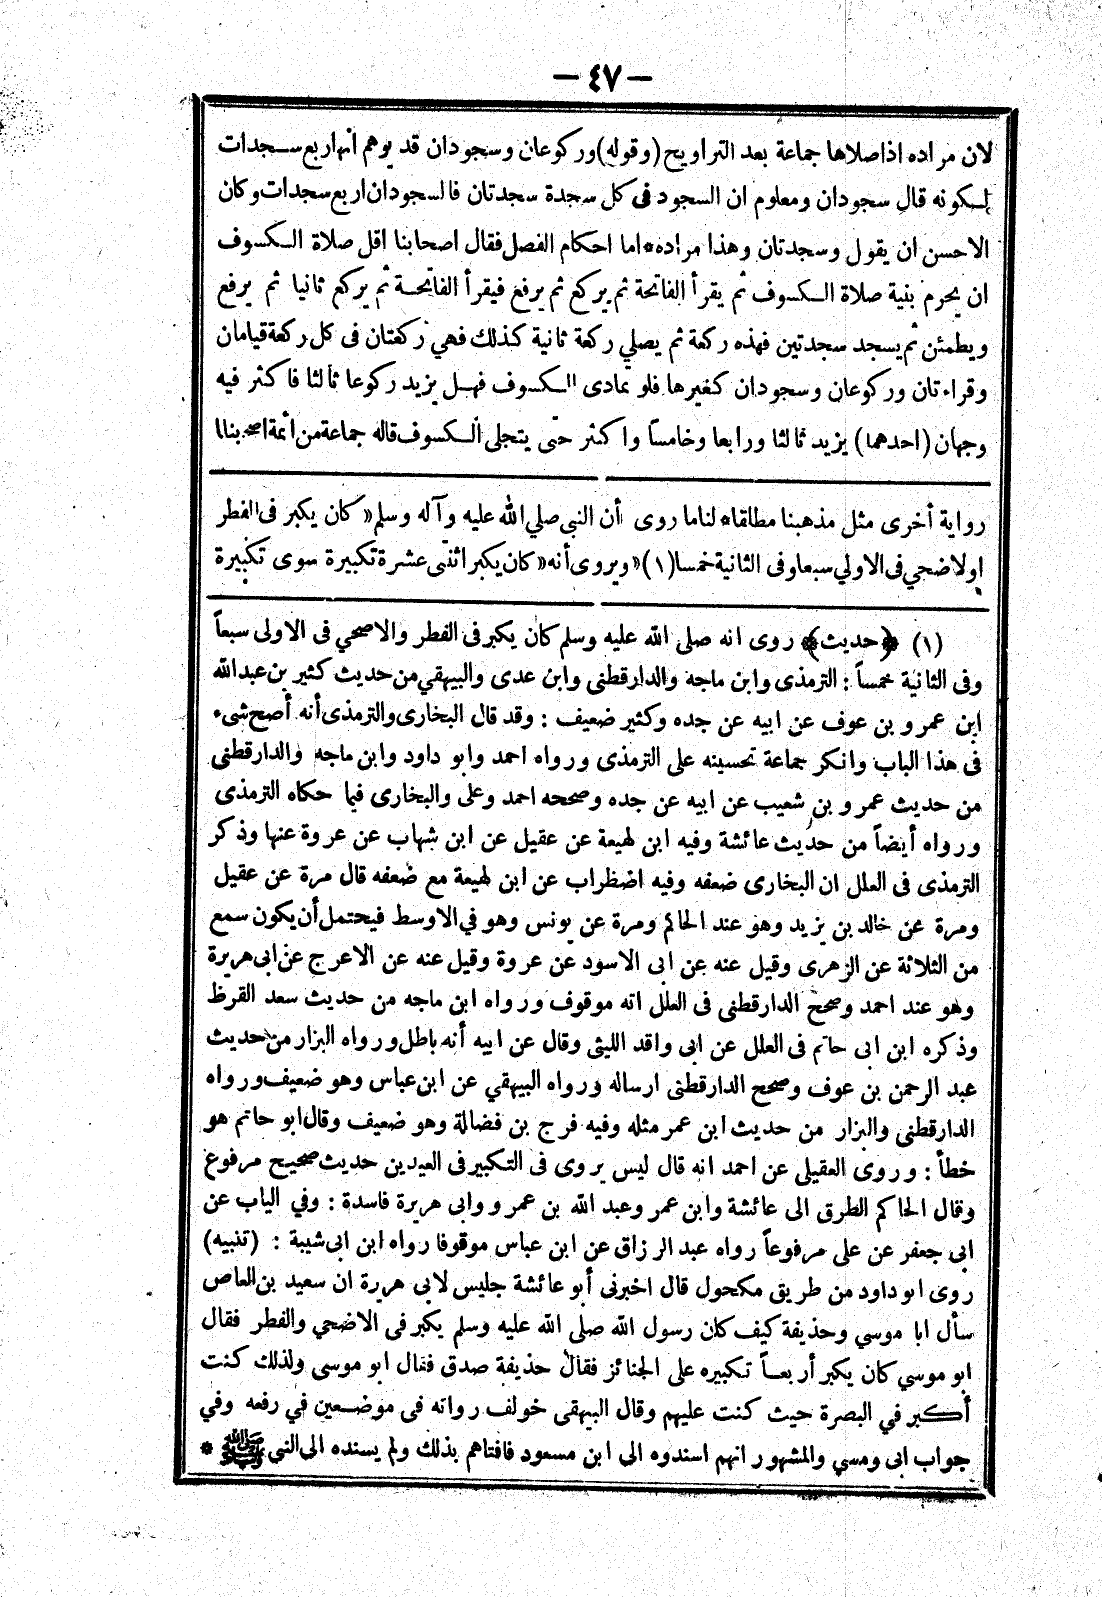 — ٤٧ —
لان مراده اذاصلاها جماعة بعد التراويح (وقوله) وركوعان وسجودان قد يوهم أنها اربع ســجدات
لـكونه قال سجودان ومعلوم ان السجود فى كل سجدة سجدتان فالسجودان اربع سجدات وكان
الاحسن ان يقول وسجدتان وهذا مراده * اما احكام الفصل فقال اصحابنا اقل صلاة الـكسوف
ان يحرم بنية صلاة الـكسوف ثم يقرأ الفاتحة ثم يركع ثم يرفع فيقرأ الفاتحـة ثم يركع ثانيا ثم يرفع
ويطمئن ثم يسجد سجدتين فهذه ركعة ثم يصلي ركعة ثانية كذلك فهي ركعتان فى كل ركعة قيامان
وقراءتان وركوعان وسجودان كغيرها فلو تمادى الـكسوف فهـل يزيد ركوعا ثالثا فاكثر فيه
وجهان (احدهما) يزيد ثالثا ورابعا وخامساً واكثر حتى يتجلى الـكسوف قاله جماعة من أئمة اصحابنا
رواية أخرى مثل مذهبنا مطلقا * لنا ما روى أن النبى صلي الله عليه وآله وسلم « كان يكبر فى الفطر
اولاضحي فى الاولي سبعا وفى الثانية خمسا (١) » ويروى أنه « كان يكبر اثنتى عشرة تكبيرة سوى تكبيرة
(١) ﴿حديث﴾ روى انه صلى الله عليه وسلم كان يكبر فى الفطر والاضحي فى الاولى سبعاً
وفى الثانية خمساً : الترمذى وابن ماجه والدارقطنى وابن عدى والبيهقي من حديث كثير بن عبدالله
ابن عمرو بن عوف عن ابيه عن جده وكثير ضعيف : وقد قال البخارى والترمذى أنه أصح شىء
فى هذا الباب وانكر جماعة تحسينه على الترمذى ورواه احمد وابو داود وابن ماجه والدارقطنى
من حديث عمرو بن شعيب عن ابيه عن جده وصححه احمد وعلى والبخارى فيما حكاه الترمذى
ورواه أيضاً من حديث عائشة وفيه ابن لهيعة عن عقيل عن ابن شهاب عن عروة عنها وذكر
الترمذى فى العلل ان البخارى ضعفه وفيه اضطراب عن ابن لهيعة مع ضعفه قال مرة عن عقيل
ومرة عن خالد بن يزيد وهو عند الحاكم ومرة عن يونس وهو في الاوسط فيحتمل أن يكون سمع
من الثلاثة عن الزهرى وقيل عنه عن ابى الاسود عن عروة وقيل عنه عن الاعرج عن ابى هريرة
وهو عند احمد وصحح الدارقطنى فى العلل انه موقوف ورواه ابن ماجه من حديث سعد القرظ
وذكره ابن ابى حاتم فى العلل عن ابى واقد الليثى وقال عن ابيه أنه باطل ورواه البزار من حديث
عبد الرحمن بن عوف وصحح الدارقطنى ارساله ورواه البيهقي عن ابن عباس وهو ضعيف ورواه
الدارقطنى والبزار من حديث ابن عمر مثله وفيه فرج بن فضالة وهو ضعيف وقال ابو حاتم هو
خطأ : وروى العقيلى عن احمد انه قال ليس يروى فى التكبير فى العيدين حديث صحيح مرفوع
وقال الحاكم الطرق الى عائشة وابن عمر وعبد الله بن عمرو وابى هريرة فاسدة : وفي الباب عن
ابى جعفر عن على مرفوعاً رواه عبد الرزاق عن ابن عباس موقوفا رواه ابن ابى شيبة : (تنبيه)
روى ابو داود من طريق مكحول قال اخبرنى أبو عائشة جليس لابى هريرة ان سعيد بن العاص
سأل ابا موسي وحذيفة كيف كان رسول الله صلى الله عليه وسلم يكبر فى الاضحي والفطر فقال
ابو موسي كان يكبر أربعــاً تكبيره على الجنائز فقال حذيفة صدق فقال ابو موسى ولذلك كنت
أكـبر في البصرة حيث كنت عليهم وقال البيهقى خولف رواته فى موضـعين في رفعه وفي
جواب ابى ومسي والمشهور انهم اسندوه الى ابن مسعود فافتاهم بذلك ولم يسنده الى النبي ﷺ *